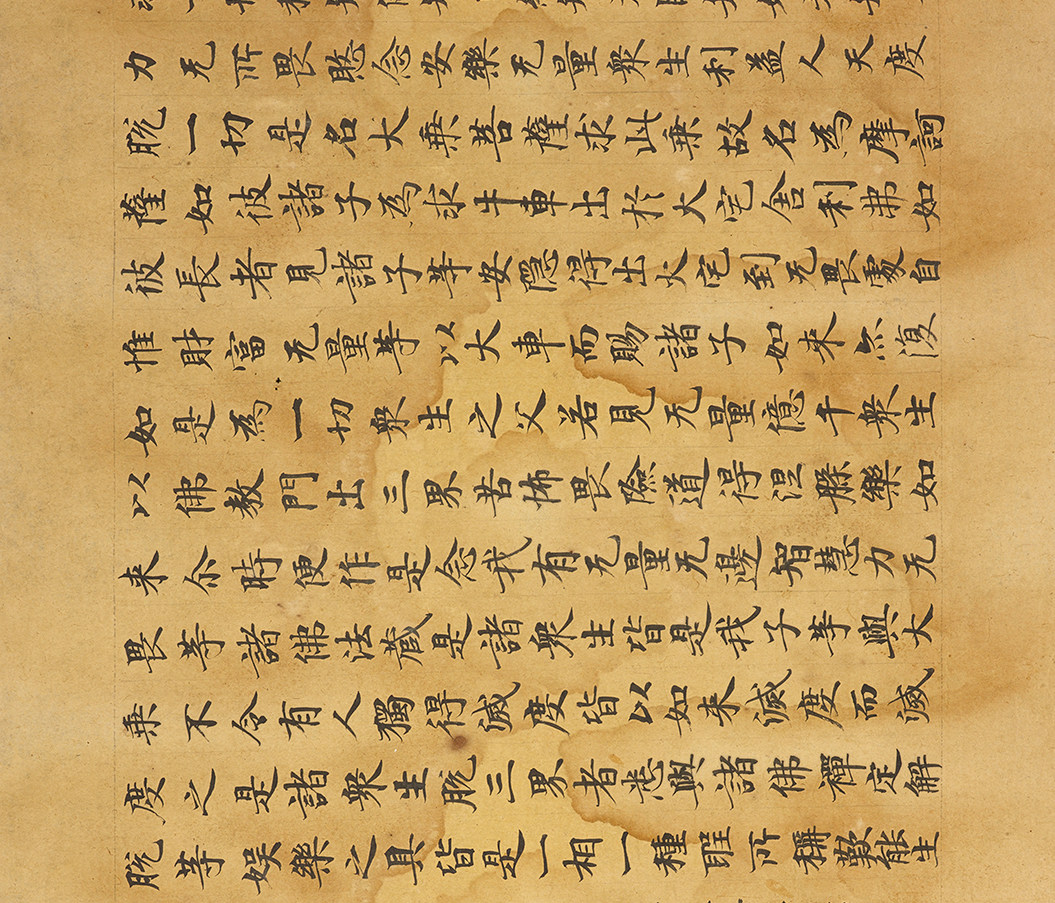 力无所畏愍念安樂无量衆生利益人天度
脫一切是名大乘菩薩求此乘故名為摩訶
薩如彼諸子為求牛車出於火宅舍利弗如
彼長者見諸子等安隱得出火宅到无畏處自
惟財富无量等以大車而賜諸子如来亦復
如是為一切衆生之父若見无量億千衆生
以佛教門出三界苦怖畏險道得涅槃樂如
来尒時便作是念我有无量无邊智慧力无
畏等諸佛法藏是諸衆生皆是我子等與大
乘不令有人獨得滅度皆以如来滅度而滅
度之是諸衆生脫三界者悉與諸佛禪定解
脫等娛樂之具皆是一相一種聖所稱歎能生